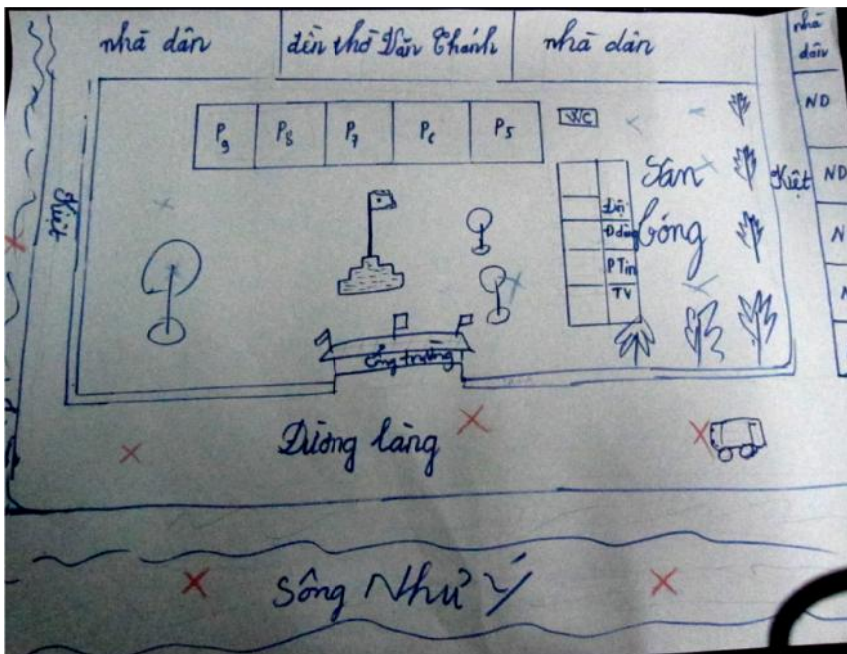 nhà dân
đền thờ Văn Thánh
nhà dân
nhà
dân
ND
ND
N
P9
P8
P7
P6
P5
WC
Kiệt
Kiệt
Sân
bóng
Đội
P Tin
TV
Cổng trường
Đường làng
Sông Như Ý